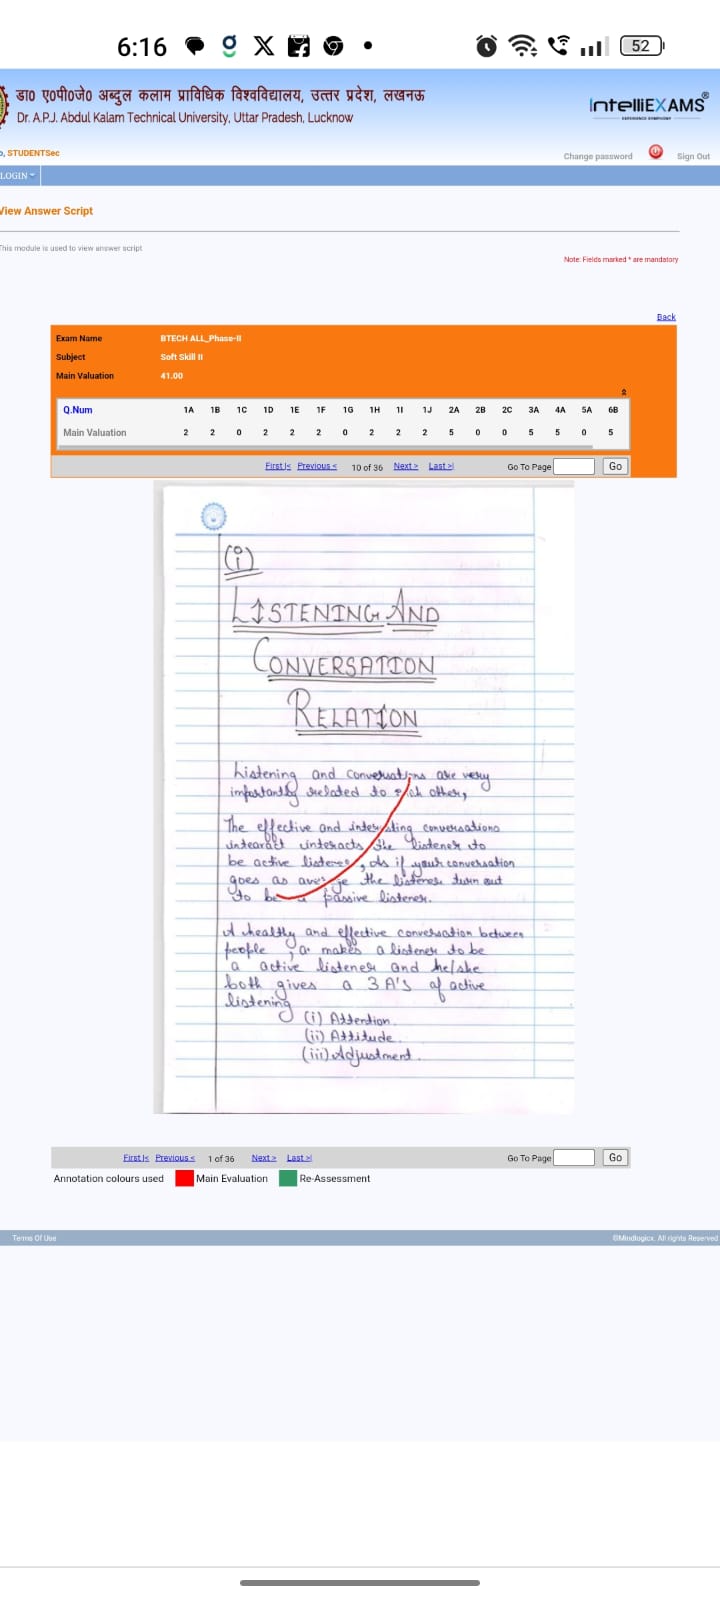 6:16
52
डा0 ए0पी0जे0 अब्दुल कलाम प्राविधिक विश्वविद्यालय, उत्तर प्रदेश, लखनऊ
Dr. A.P.J. Abdul Kalam Technical University, Uttar Pradesh, Lucknow
IntelliEXAMS®
o, STUDENTSec
Change password
Sign Out
LOGIN
View Answer Script
This module is used to view answer script
Note: Fields marked * are mandatory
Back
Exam Name BTECH ALL_Phase-II
Subject Soft Skill II
Main Valuation 41.00
Q.Num 1A 1B 1C 1D 1E 1F 1G 1H 1I 1J 2A 2B 2C 3A 4A 5A 6B
Main Valuation 2 2 0 2 2 2 0 2 2 2 5 0 0 5 5 0 5
First|< Previous < 10 of 36 Next > Last >| Go To Page Go
(i)
LISTENING AND
CONVERSATION
RELATION
Listening and conversations are very
importantly related to each other,
The effective and interesting conversations
intearact interacts the listener to
be active listener, As if your conversation
goes as average the listener turn out
to be a passive listener.
A healthy and effective conversation between
people, a makes a listener to be
a active listener and he/she
both gives a 3 A's of active
listening
(i) Attention.
(ii) Attitude.
(iii) Adjustment.
First|< Previous < 1 of 36 Next > Last >| Go To Page Go
Annotation colours used Main Evaluation Re-Assessment
Terms Of Use
©Mindlogicx. All rights Reserved